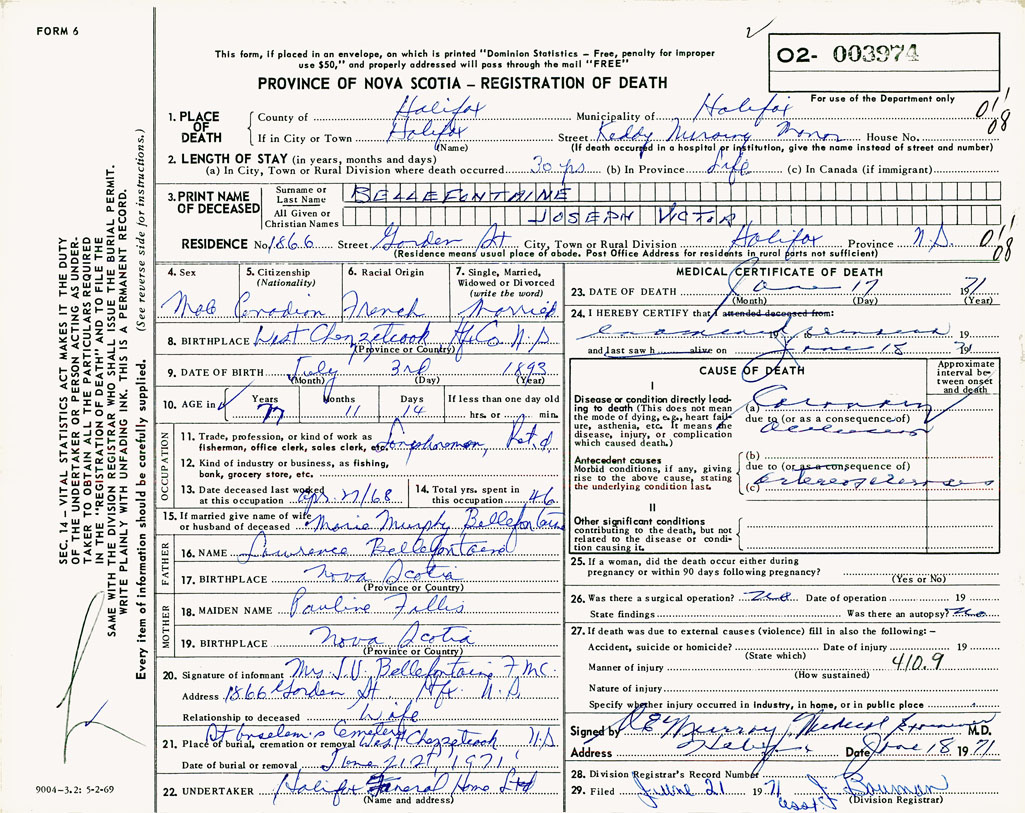 FORM 6
This form, if placed in an envelope, on which is printed "Dominion Statistics – Free, penalty for improper
use $50," and properly addressed will pass through the mail "FREE"
O2- 003974
PROVINCE OF NOVA SCOTIA – REGISTRATION OF DEATH
For use of the Department only
1. PLACE OF DEATH
County of Halifax Municipality of Halifax
If in City or Town Halifax Street Keddy Nursing Manor House No.
(Name) (If death occurred in a hospital or institution, give the name instead of street and number)
01'
08
2. LENGTH OF STAY (in years, months and days)
(a) In City, Town or Rural Division where death occurred 30 yrs (b) In Province Life (c) In Canada (if immigrant)
3. PRINT NAME OF DECEASED
Surname or Last Name BELLEFONTAINE
All Given or Christian Names JOSEPH VICTOR
RESIDENCE No 1866 Street Gorden St City, Town or Rural Division Halifax Province N.S.
(Residence means usual place of abode. Post Office Address for residents in rural parts not sufficient)
01'
08
4. Sex
Male
5. Citizenship
(Nationality)
Canadian
6. Racial Origin
French
7. Single, Married,
Widowed or Divorced
(write the word)
Married
8. BIRTHPLACE West Chezzetcook Hfx Co. N.S
(Province or Country)
9. DATE OF BIRTH July 3rd 1893
(Month) (Day) (Year)
10. AGE in
Years Months Days If less than one day old
77 11 14 hrs. or min.
OCCUPATION
11. Trade, profession, or kind of work as
fisherman, office clerk, sales clerk, etc. Longshoreman, Ret'd.
12. Kind of industry or business, as fishing,
bank, grocery store, etc.
13. Date deceased last worked
at this occupation Apr 27/68
14. Total yrs. spent in
this occupation 46
15. If married give name of wife
or husband of deceased Marie Murphy Bellefontaine
FATHER
16. NAME Lawrence Bellefontaine
17. BIRTHPLACE Nova Scotia
(Province or Country)
MOTHER
18. MAIDEN NAME Pauline Fillis
19. BIRTHPLACE Nova Scotia
(Province or Country)
20. Signature of informant Mrs J.V. Bellefontaine F.M.C.
Address 1866 Gorden St Hfx N.S
Relationship to deceased Wife
St Anselem's Cemetery
21. Place of burial, cremation or removal West Chezzetcook N.S.
Date of burial or removal June 21st 1971
22. UNDERTAKER Halifax Funeral Home Ltd
(Name and address)
MEDICAL CERTIFICATE OF DEATH
23. DATE OF DEATH June 17 1971
(Month) (Day) (Year)
24. I HEREBY CERTIFY that I attended deceased from:
examined remains 19 to 19
and last saw h alive on June 18 1971
CAUSE OF DEATH
Approximate
interval between onset
and death
I
Disease or condition directly leading to death (This does not mean
the mode of dying, e.g., heart failure, asthenia, etc. It means the
disease, injury, or complication
which caused death.)
(a) Coronary
due to (or as a consequence of)
occlusion
Antecedent causes
Morbid conditions, if any, giving
rise to the above cause, stating
the underlying condition last.
(b)
due to (or as a consequence of)
(c) arteriosclerosis
II
Other significant conditions
contributing to the death, but not
related to the disease or condition causing it.
25. If a woman, did the death occur either during
pregnancy or within 90 days following pregnancy?
(Yes or No)
26. Was there a surgical operation? no Date of operation 19
State findings Was there an autopsy? no
27. If death was due to external causes (violence) fill in also the following: –
Accident, suicide or homicide? Date of injury 19
(State which)
Manner of injury 410.9
(How sustained)
Nature of injury
Specify whether injury occurred in industry, in home, or in public place
Signed by Murray, Medical Examiner M.D.
Address Halifax Date June 18 1971
28. Division Registrar's Record Number
29. Filed June 21 1971 J Bouman
asst. (Division Registrar)
SEC. 14 – VITAL STATISTICS ACT MAKES IT THE DUTY
OF THE UNDERTAKER OR PERSON ACTING AS UNDERTAKER TO OBTAIN ALL THE PARTICULARS REQUIRED
IN THE "REGISTRATION OF DEATH" AND TO FILE THE
SAME WITH THE DIVISION REGISTRAR WHO SHALL ISSUE THE BURIAL PERMIT.
WRITE PLAINLY WITH UNFADING INK. THIS IS A PERMANENT RECORD.
Every item of information should be carefully supplied. (See reverse side for instructions.)
9004-3.2: 5-2-69